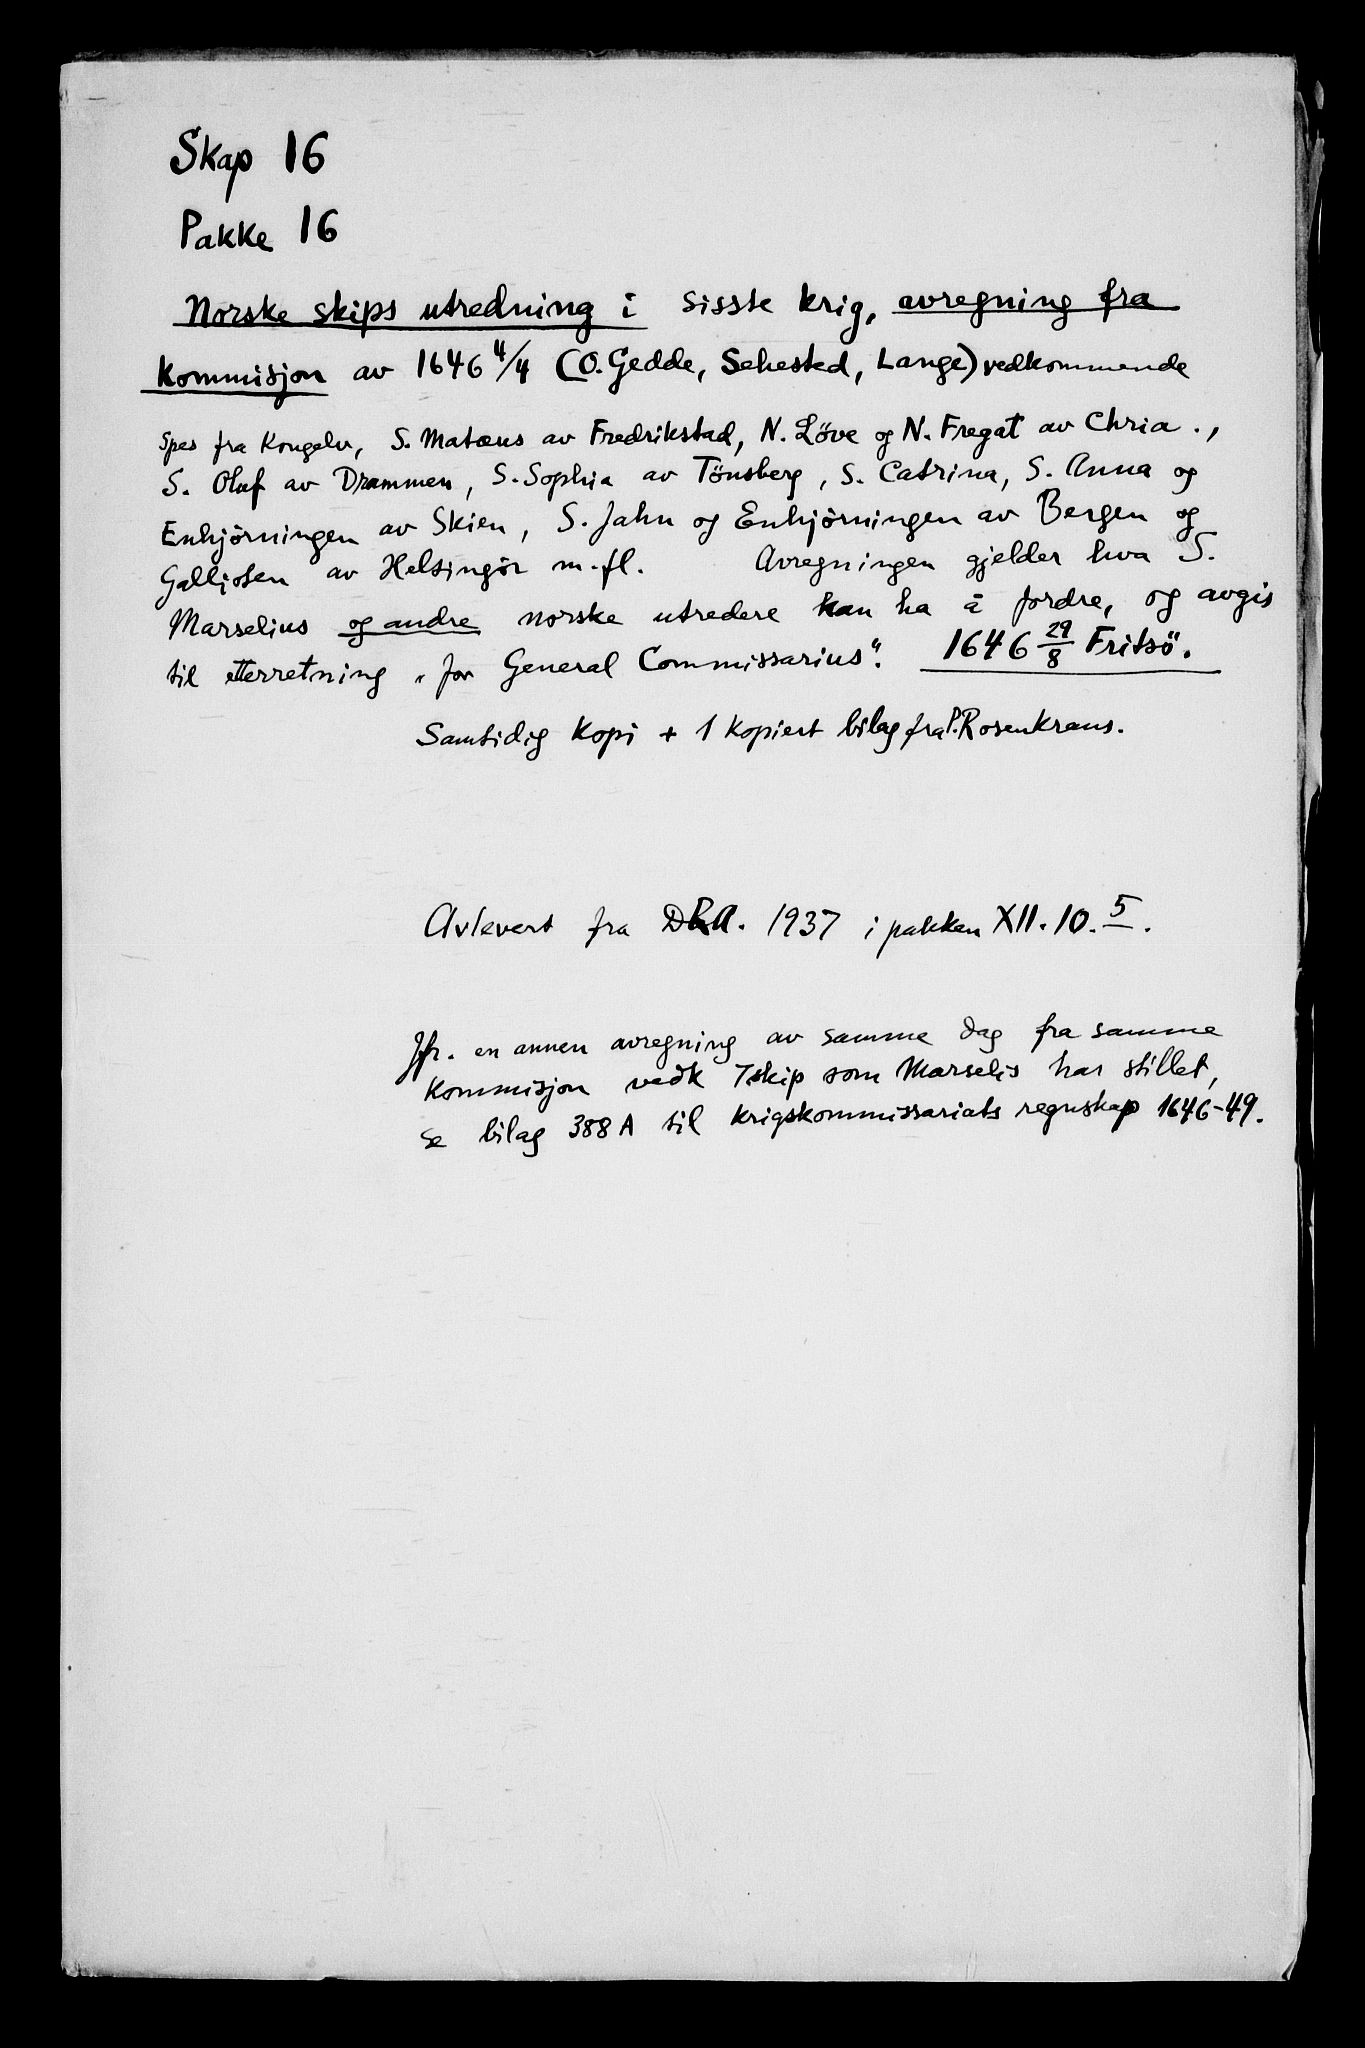 Skap 16
Pakke 16
Norske skips utredning i sisste krig, avregning fra
kommisjon av 1646 4/4 (O. Gedde, Sehested, Lange) vedkommende
Spes fra Kongelv, S. Matæus av Fredrikstad, N. Löve og N. Fregat av Chria.,
S. Oluf av Drammen, S. Sophia av Tönsberg, S. Catrina, S. Anna og
Enhjörningen av Skien, S. Jahn og Enhjörningen av Bergen og
Galljoten av Helsingör m. fl. Avregningen gjelder hva S.
Marselius og andre norske utredere kan ha å fordre, og avgis
til etterretning „for General Commissarius". 1646 29/8 Fritsö.
Samtidig kopi + 1 kopiert bilag fra P. Rosenkrans.
Avlevert fra DRA. 1937 i pakken XII. 10. 5.
Jfr. en annen avregning av samme dag fra samme
kommisjon vedk 7 skip som Marselis har stillet,
se bilag 388 A til krigskommissariats regnskap 1646-49.